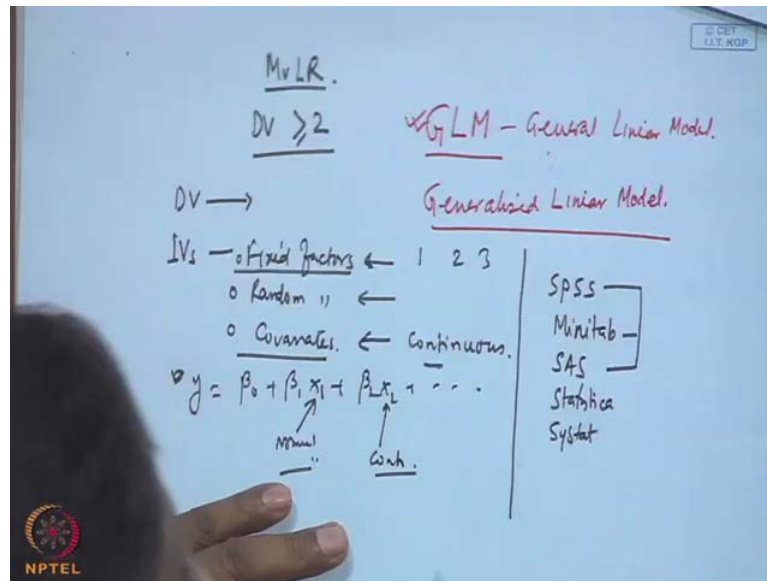 © CET
I.I.T. KGP
MvLR.
DV ≥ 2
GLM - General Linear Model.
Generalised Linear Model.
DV →
IVs - o Fixed factors ← 1 2 3
o Random " ←
o Covariates. ← Continuous.
y = β₀ + β₁ x₁ + β₂ x₂ + ....
Cont.
SPSS
Minitab
SAS
Statistica
Systat
NPTEL